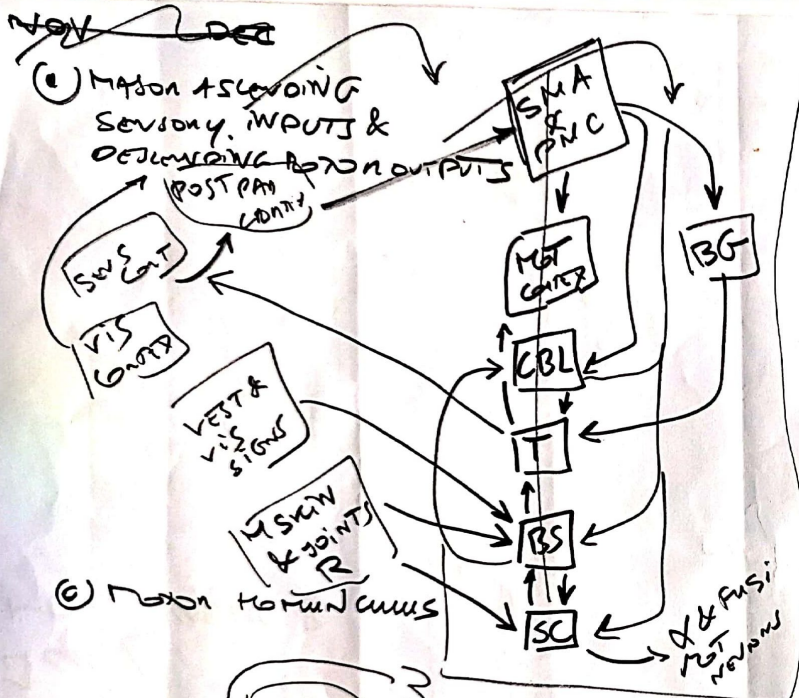 NOV DEC
(a) MAJOR ASCENDING
SENSORY INPUTS &
DESCENDING MOTOR OUTPUTS
POST PAR
SENS
VIS
CORTEX
VEST &
VIS
SIGNS
M SKIN
& JOINTS
R
SMA
&
PMC
MOT
CORTEX
BG
CBL
T
BS
SC
α & FUSI
MOT
NEURONS
(c) MOTOR HOMUNCULUS